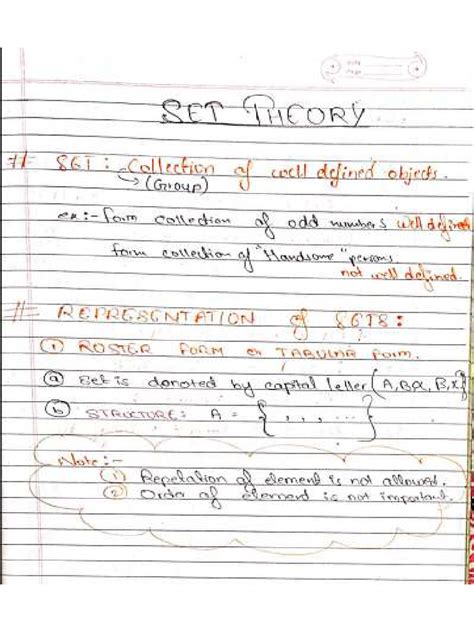 Date
Page
SET THEORY
# SET : Collection of well defined objects.
(Group)
ex:- form collection of odd numbers well defined
form collection of "Handsome" persons.
not well defined.
# REPRESENTATION of SETS :
① ROSTER FORM or TABULAR form.
ⓐ Set is donoted by capital letter {A, B,
ⓑ STRUCTURE: A = { , , , ... }
Note :-
① Repetation of element is not allowed.
② Order of element is not important.